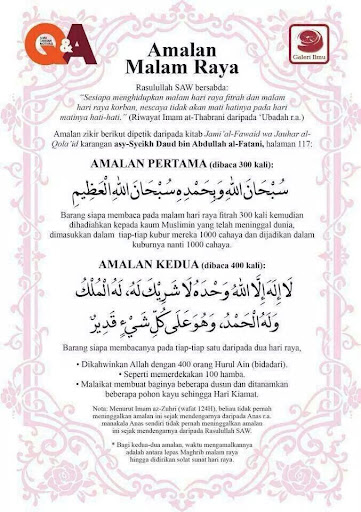 Q&A
Galeri Ilmu
Amalan
Malam Raya
Rasulullah SAW bersabda:
"Sesiapa menghidupkan malam hari raya fitrah dan malam
hari raya korban, nescaya tidak akan mati hatinya pada hari
matinya hati-hati." (Riwayat Imam at-Thabrani daripada 'Ubadah r.a.)
Amalan zikir berikut dipetik daripada kitab Jami'al-Fawaid wa Jauhar al-
Qola'id karangan asy-Syeikh Daud bin Abdullah al-Fatani, halaman 117:
AMALAN PERTAMA (dibaca 300 kali):
سُبْحَانَ اللهِ وَبِحَمْدِهِ سُبْحَانَ اللهِ الْعَظِيْمِ
Barang siapa membaca pada malam hari raya fitrah 300 kali kemudian
dihadiahkan kepada kaum Muslimin yang telah meninggal dunia,
dimasukkan dalam tiap-tiap kubur mereka 1000 cahaya dan dijadikan dalam
kuburnya nanti 1000 cahaya.
AMALAN KEDUA (dibaca 400 kali):
لَا إِلَهَ إِلَّا اللهُ وَحْدَهُ لَا شَرِيْكَ لَهُ، لَهُ الْمُلْكُ
وَلَهُ الْحَمْدُ، وَهُوَ عَلَى كُلِّ شَيْءٍ قَدِيْرٌ
Barang siapa membacanya pada tiap-tiap satu daripada dua hari raya,
• Dikahwinkan Allah dengan 400 orang Hurul Ain (bidadari).
• Seperti memerdekakan 100 hamba.
• Malaikat membuat baginya beberapa dusun dan ditanamkan
beberapa pohon kayu sehingga Hari Kiamat.
Nota: Menurut Imam az-Zuhri (wafat 124H), beliau tidak pernah
meninggalkan amalan ini sejak mendengarnya daripada Anas r.a.
manakala Anas sendiri tidak pernah meninggalkan amalan
ini sejak mendengarnya daripada Rasulullah SAW.
* Bagi kedua-dua amalan, waktu mengamalkannya
adalah antara lepas Maghrib malam raya
hingga didirikan solat sunat hari raya.